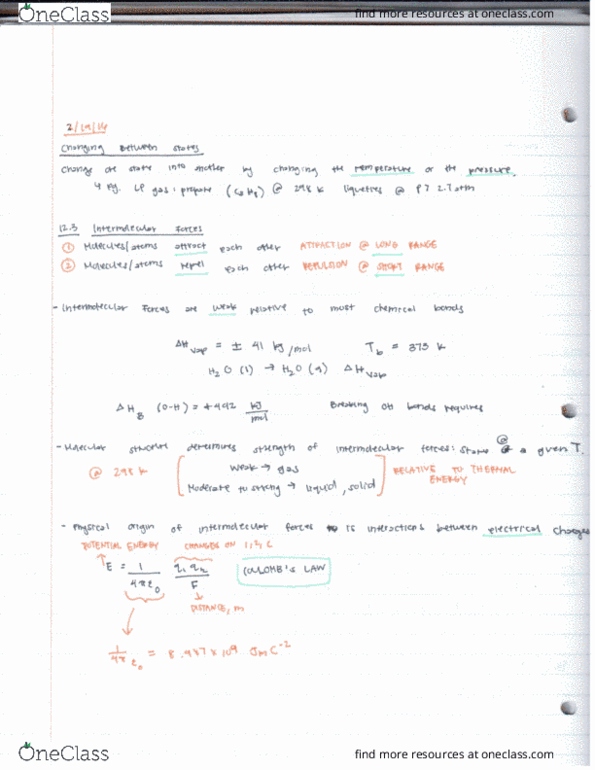 OneClass
find more resources at oneclass.com
2/19/14
Changing Between States
Change one state into another by changing the temperature or the pressure.
LP gas: propane (C3H8) @ 298 K liquefies @ P > 2.7 atm
12.3 Intermolecular Forces
① Molecules/atoms attract each other ATTRACTION @ LONG RANGE
② Molecules/atoms repel each other REPULSION @ SHORT RANGE
- Intermolecular Forces are weak relative to most chemical bonds
ΔHvap = ± 41 kJ/mol Tb = 373 K
H2O (l) → H2O (g) ΔHvap
ΔHB (O-H) = +492 kJ/mol Breaking OH bonds requires
- Molecular structure determines strength of intermolecular forces: state @ a given T.
@ 298 K
Weak → gas
Moderate to strong → liquid, solid
RELATIVE TO THERMAL ENERGY
- Physical origin of intermolecular forces is interactions between electrical charges
POTENTIAL ENERGY CHARGES ON 1, 2, C
E = 1/4πε0 q1 q2/r COULOMB'S LAW
DISTANCE, m
1/4πε0 = 8.987 x 10^9 JmC^-2
OneClass
find more resources at oneclass.com